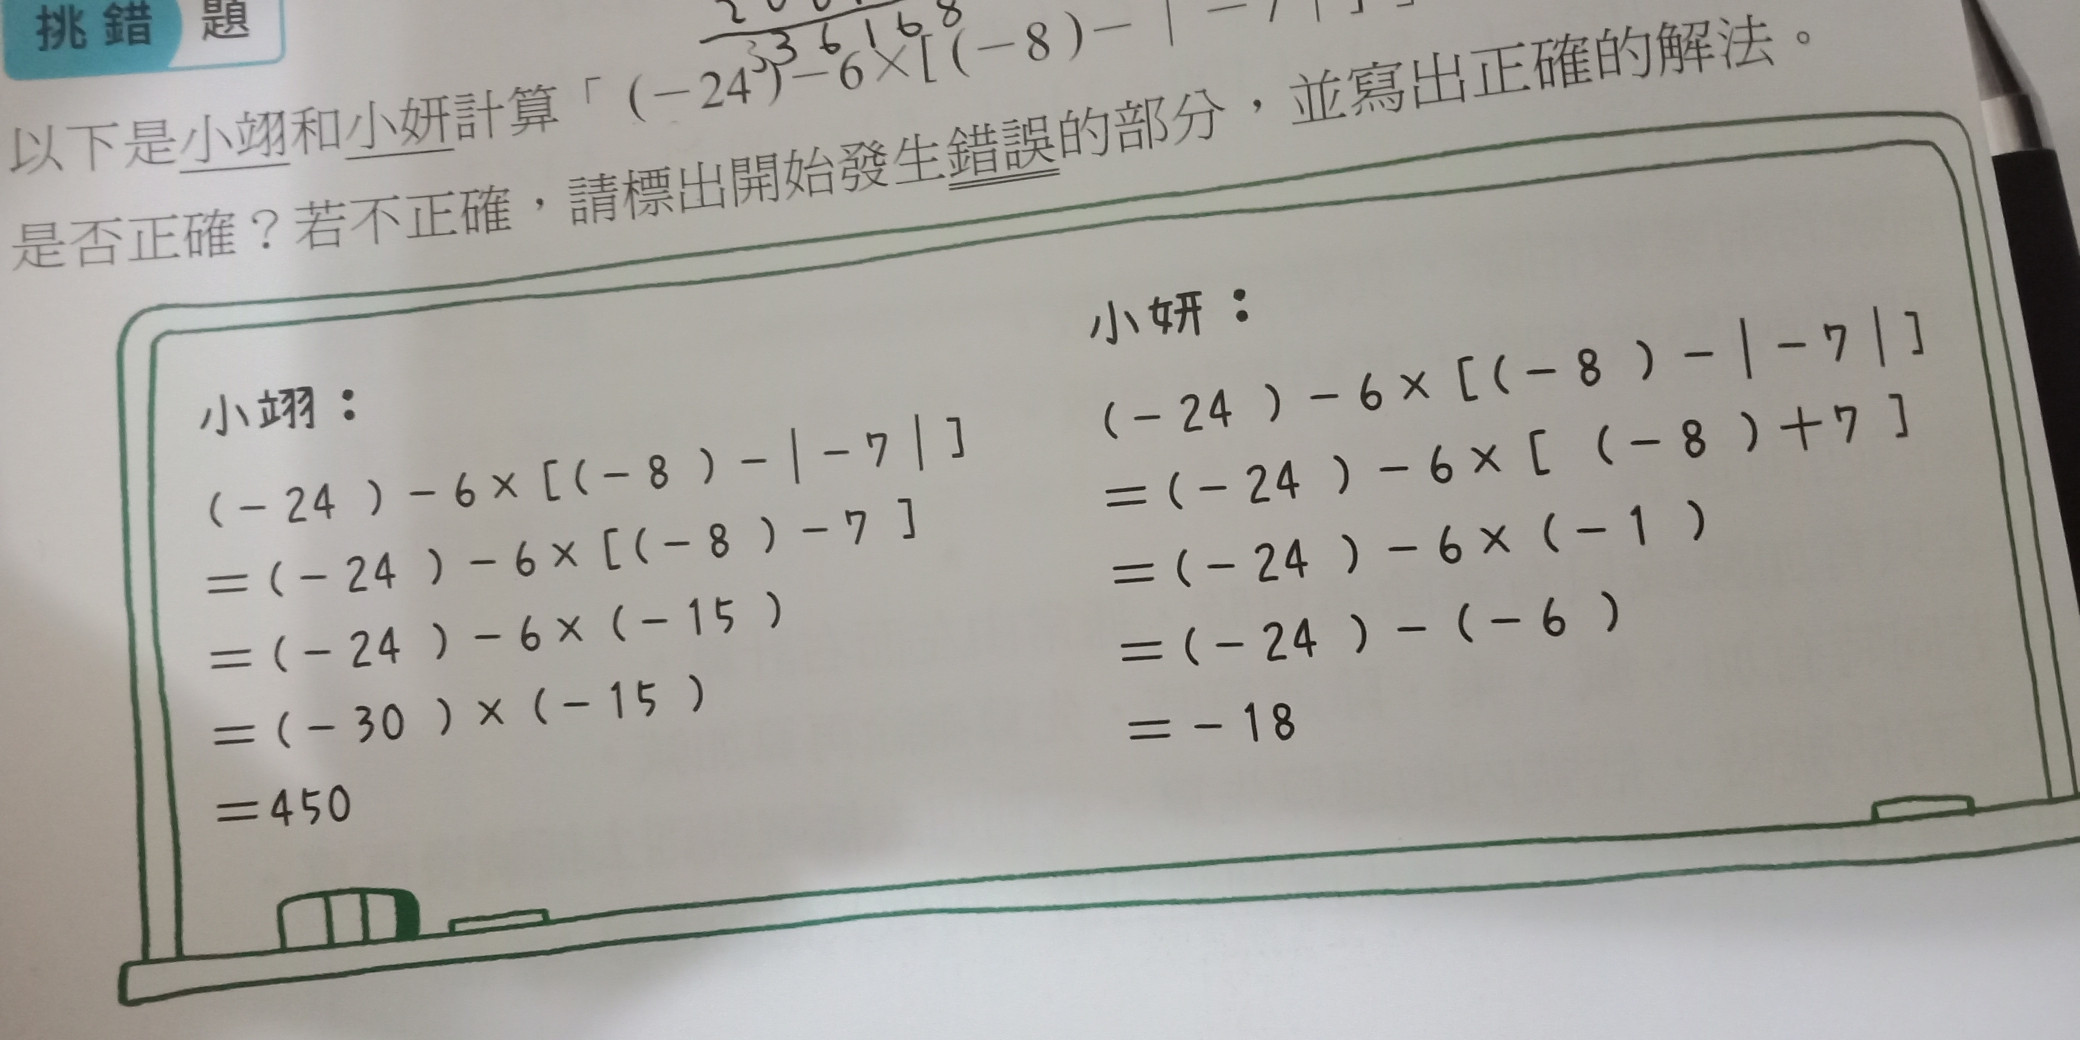 挑錯題
以下是小翊和小妍計算「(-24)-6×[(-8)-|-7|]
是否正確？若不正確，請標出開始發生錯誤的部分，並寫出正確的解法。
336168
小翊：
(-24)-6×[(-8)-|-7|]
=(-24)-6×[(-8)-7]
=(-24)-6×(-15)
=(-30)×(-15)
=450
小妍：
(-24)-6×[(-8)-|-7|]
=(-24)-6×[(-8)+7]
=(-24)-6×(-1)
=(-24)-(-6)
=-18